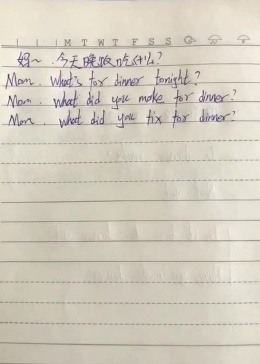 M T W T F S S
妈~.今天晚饭吃什么?
Mom. What's for dinner tonight?
Mom. what did you make for dinner?
Mom. what did you fix for dinner?